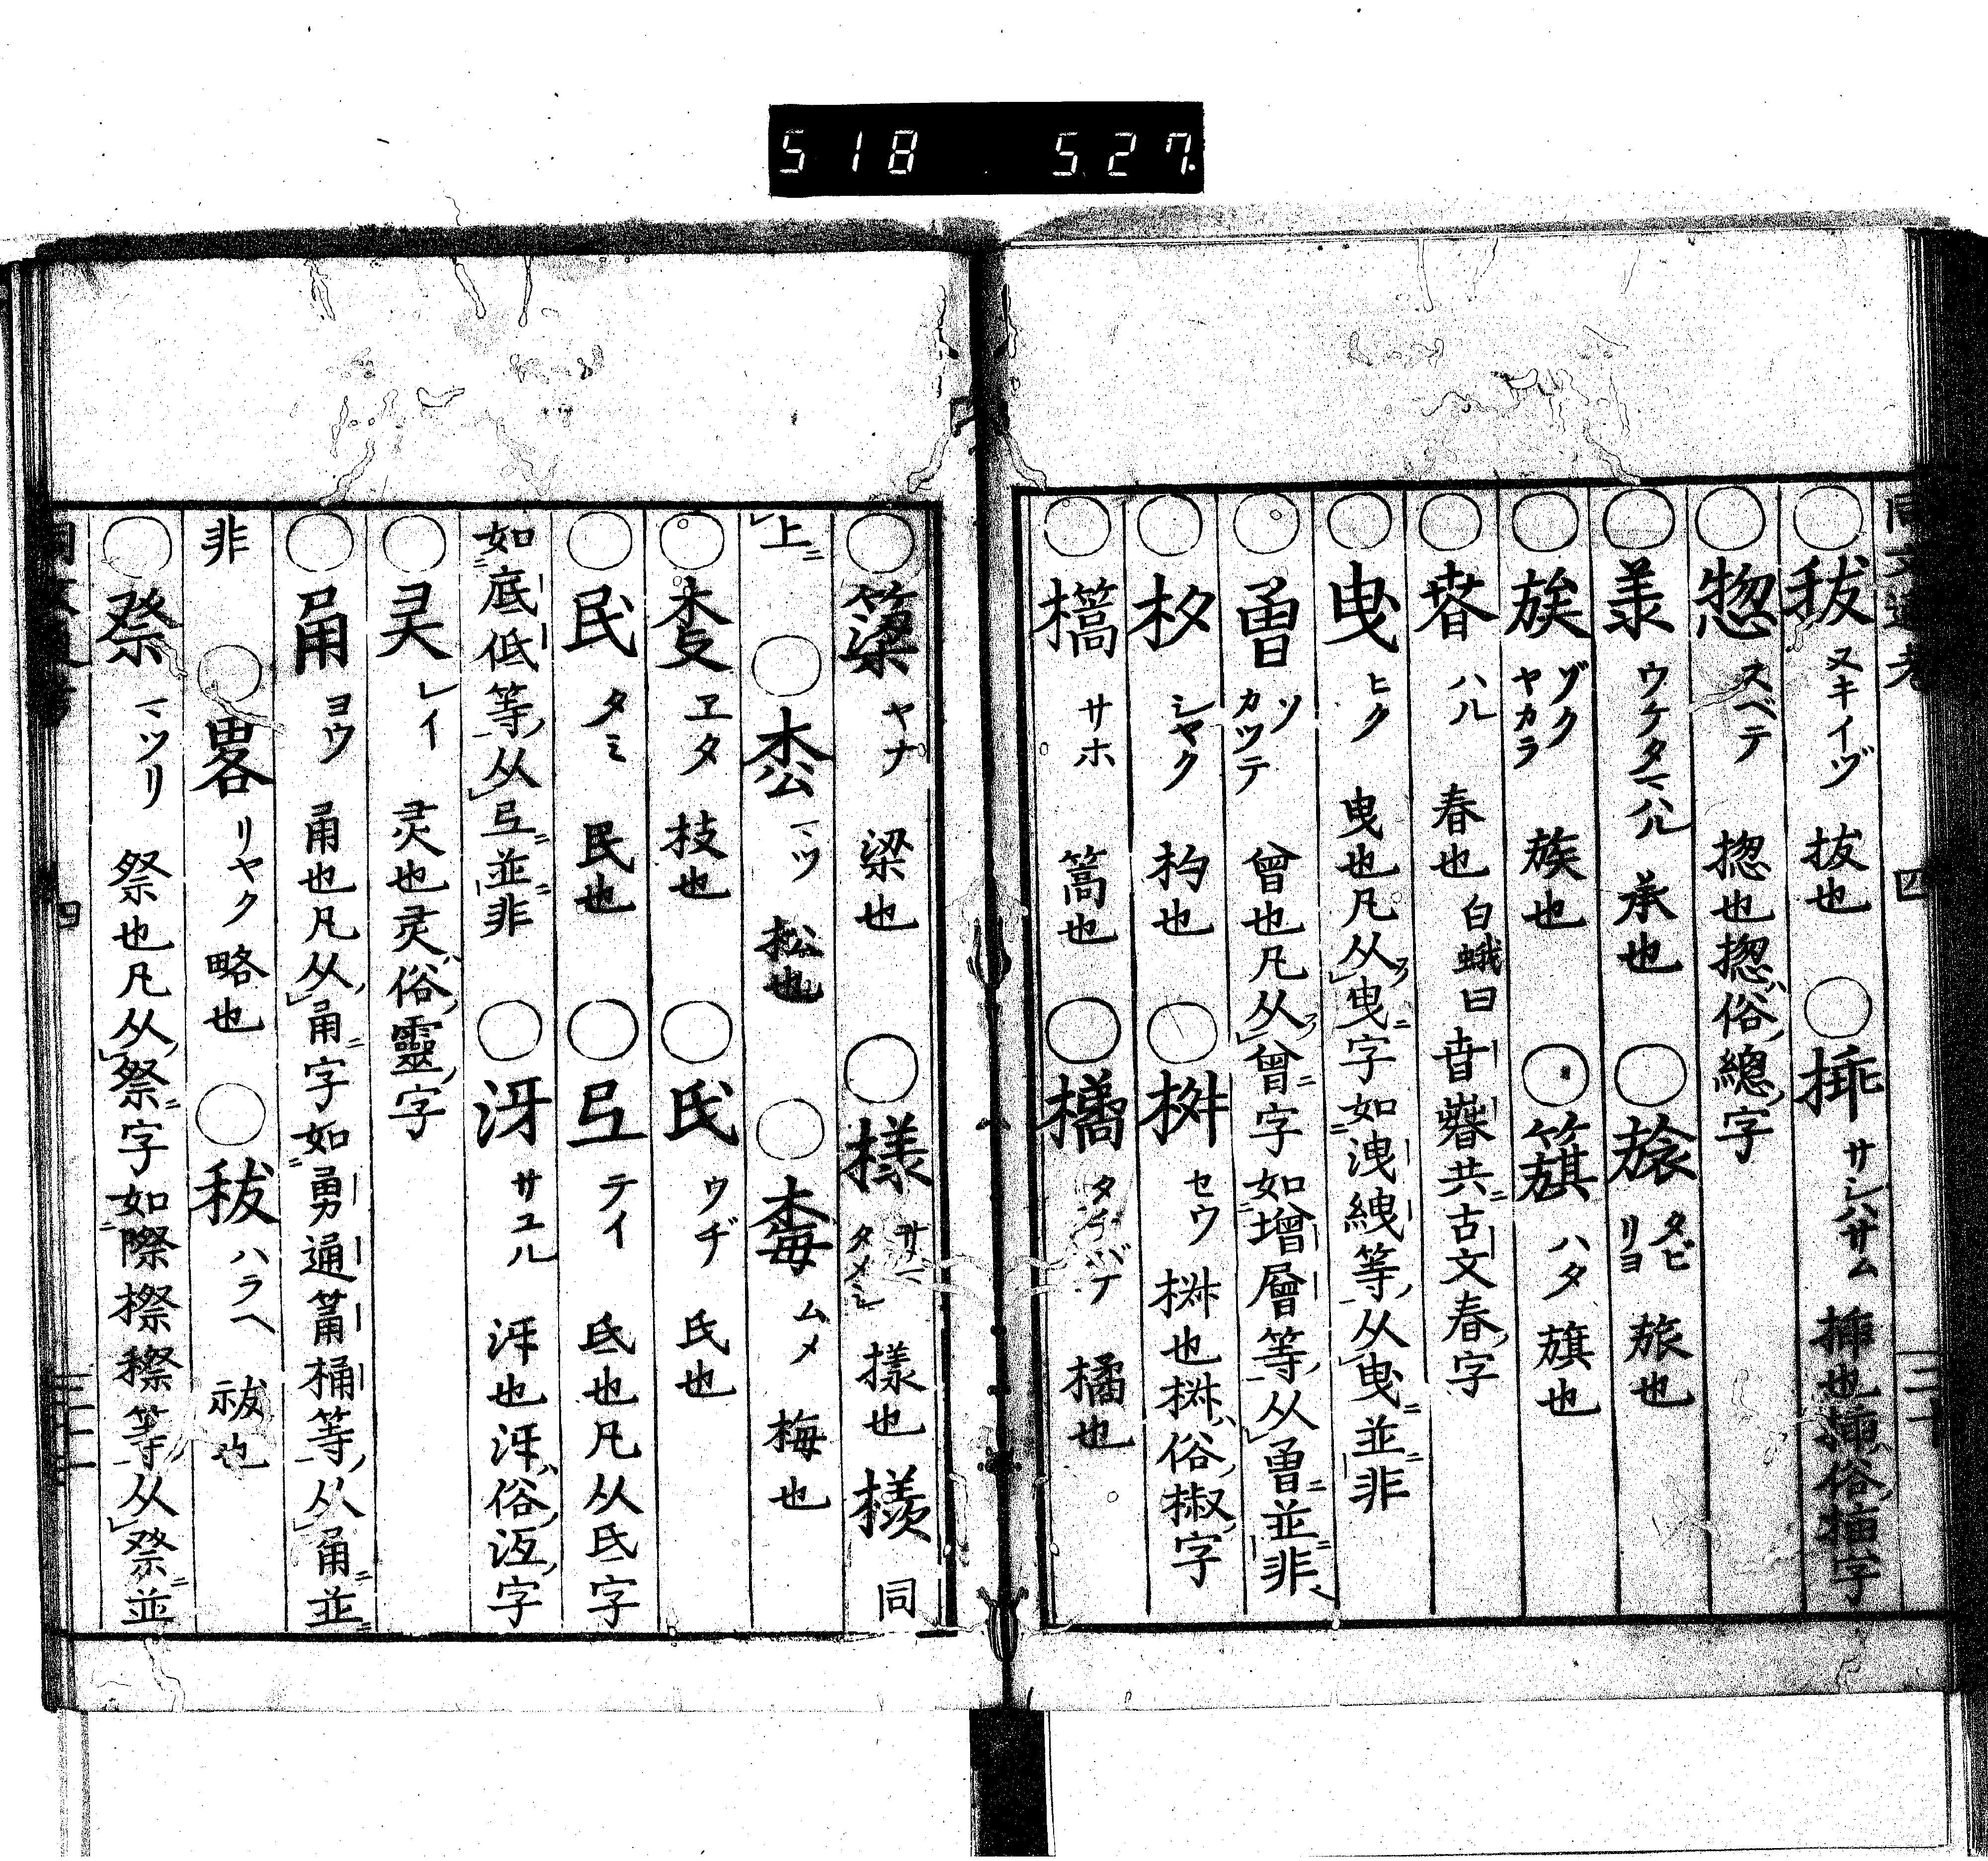 518 527.
同文通考 四 二十
○秡 ヌキイヅ 拔也 ○揷 サシハサム 揷也揷俗插字
○惣 スベテ 揔也揔俗總字
○羕 ウケタマハル 承也 ○旅 タビ リヨ 旅也
○族 ゾク ヤカラ 族也 ○籏 ハタ 旗也
○春 ハル 春也 白蛾曰 共古文春字
○曳 ヒク 曳也凡从曳字如洩絏等从曳並非
○曽 ソ カツテ 曾也凡从曾字如增層等从曽並非
○杓 シヤク 杓也 ○桝 セウ 椒也俗椒字
○篙 サホ 篙也 ○橘 タチバナ 橘也
○簗 ヤナ 梁也 ○様 サマ タメシ 樣也様同
上 ○枩 マツ 松也 ○梅 ムメ 梅也
○枝 ヱタ 枝也 ○氏 ウヂ 氏也
○民 タミ 民也 ○弖 テイ 氐也凡从氐字
如底低等从弖並非 ○冴 サユル 沍也俗沍字
○灵 レイ 灵也灵俗靈字
○甬 ヨウ 甬也凡从甬字如勇通筩桶等从甬並
非 ○畧 リヤク 略也 ○秡 ハラヘ 祓也
○祭 マツリ 祭也凡从祭字如際擦穄等从祭並